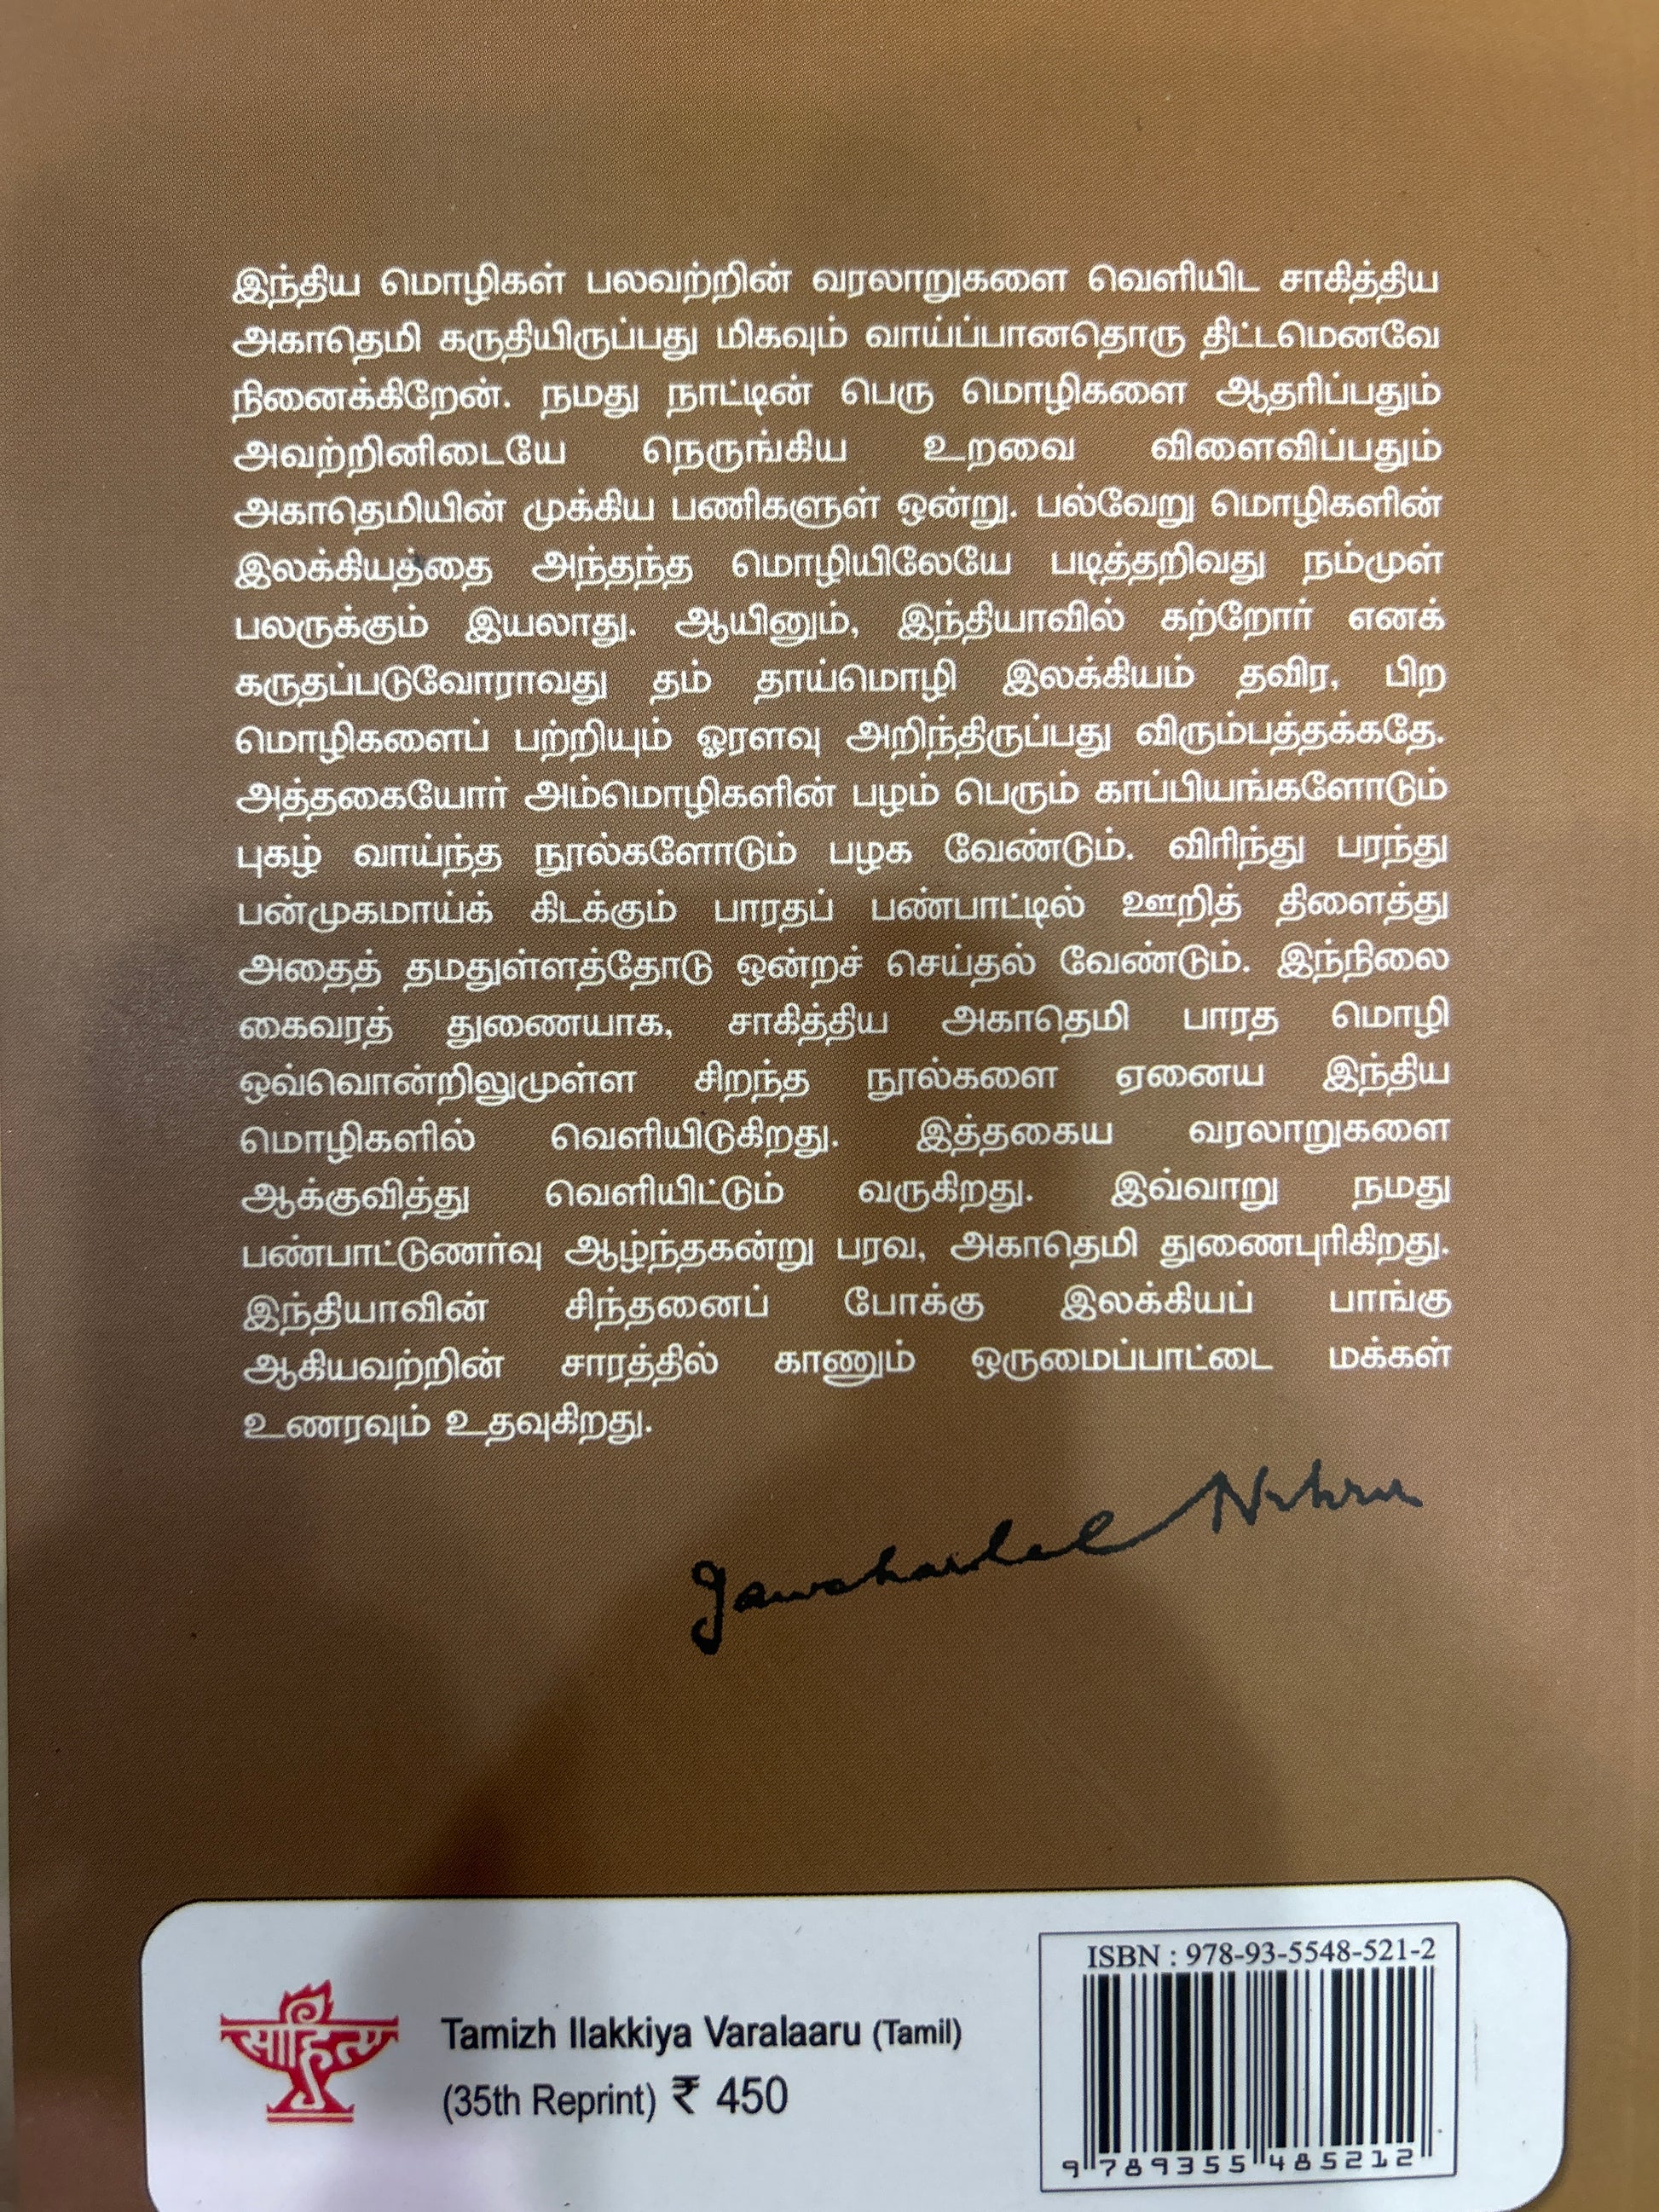 இந்திய மொழிகள் பலவற்றின் வரலாறுகளை வெளியிட சாகித்திய
அகாதெமி கருதியிருப்பது மிகவும் வாய்ப்பானதொரு திட்டமெனவே
நினைக்கிறேன். நமது நாட்டின் பெரு மொழிகளை ஆதரிப்பதும்
அவற்றினிடையே நெருங்கிய உறவை விளைவிப்பதும்
அகாதெமியின் முக்கிய பணிகளுள் ஒன்று. பல்வேறு மொழிகளின்
இலக்கியத்தை அந்தந்த மொழியிலேயே படித்தறிவது நம்முள்
பலருக்கும் இயலாது. ஆயினும், இந்தியாவில் கற்றோர் எனக்
கருதப்படுவோராவது தம் தாய்மொழி இலக்கியம் தவிர, பிற
மொழிகளைப் பற்றியும் ஓரளவு அறிந்திருப்பது விரும்பத்தக்கதே.
அத்தகையோர் அம்மொழிகளின் பழம் பெரும் காப்பியங்களோடும்
புகழ் வாய்ந்த நூல்களோடும் பழக வேண்டும். விரிந்து பரந்து
பன்முகமாய்க் கிடக்கும் பாரதப் பண்பாட்டில் ஊறித் திளைத்து
அதைத் தமதுள்ளத்தோடு ஒன்றச் செய்தல் வேண்டும். இந்நிலை
கைவரத் துணையாக, சாகித்திய அகாதெமி பாரத மொழி
ஒவ்வொன்றிலுமுள்ள சிறந்த நூல்களை ஏனைய இந்திய
மொழிகளில் வெளியிடுகிறது. இத்தகைய வரலாறுகளை
ஆக்குவித்து வெளியிட்டும் வருகிறது. இவ்வாறு நமது
பண்பாட்டுணர்வு ஆழ்ந்தகன்று பரவ, அகாதெமி துணைபுரிகிறது.
இந்தியாவின் சிந்தனைப் போக்கு இலக்கியப் பாங்கு
ஆகியவற்றின் சாரத்தில் காணும் ஒருமைப்பாட்டை மக்கள்
உணரவும் உதவுகிறது.
Jawaharlal Nehru
ISBN : 978-93-5548-521-2
साहित्य
Tamizh Ilakkiya Varalaaru (Tamil)
(35th Reprint) ₹ 450
9 789355 485212